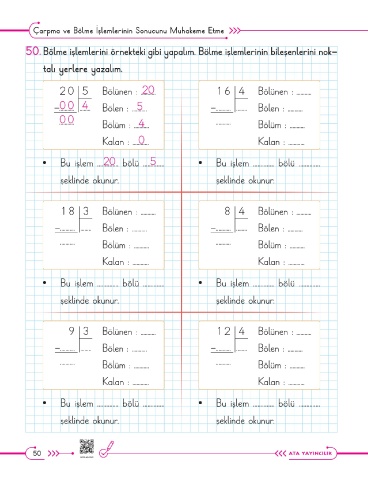 Çarpma ve Bölme İşlemlerinin Sonucunu Muhakeme Etme
50. Bölme işlemlerini örnekteki gibi yapalım. Bölme işlemlerinin bileşenlerini nok-
talı yerlere yazalım.
20 5 Bölünen : 20
-00 4 Bölen : 5
00 Bölüm : 4
Kalan : 0
• Bu işlem 20 bölü 5
şeklinde okunur.
16 4 Bölünen : ..........
- .......... ...... Bölen : ..........
.......... Bölüm : ..........
Kalan : ..........
• Bu işlem .......... bölü ..........
şeklinde okunur.
18 3 Bölünen : ..........
- .......... ...... Bölen : ..........
.......... Bölüm : ..........
Kalan : ..........
• Bu işlem .......... bölü ..........
şeklinde okunur.
8 4 Bölünen : ..........
- .......... ...... Bölen : ..........
.......... Bölüm : ..........
Kalan : ..........
• Bu işlem .......... bölü ..........
şeklinde okunur.
9 3 Bölünen : ..........
- .......... ...... Bölen : ..........
.......... Bölüm : ..........
Kalan : ..........
• Bu işlem .......... bölü ..........
şeklinde okunur.
12 4 Bölünen : ..........
- .......... ...... Bölen : ..........
.......... Bölüm : ..........
Kalan : ..........
• Bu işlem .......... bölü ..........
şeklinde okunur.
50
ATA YAYINCILIK